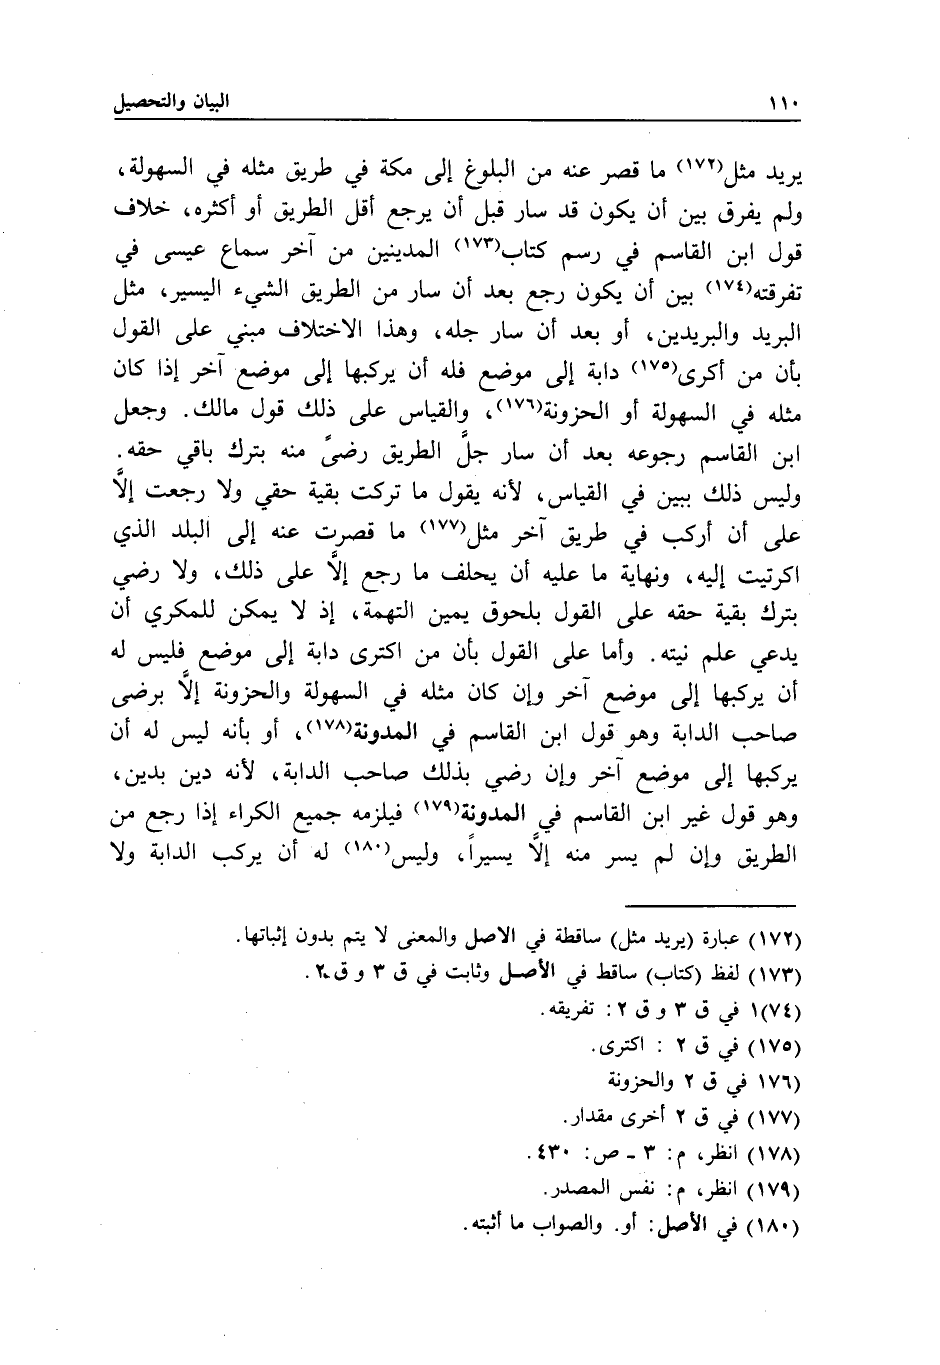 ١١٠ البيان والتحصيل
يريد مثل(١٧٢) ما قصر عنه من البلوغ إلى مكة في طريق مثله في السهولة،
ولم يفرق بين أن يكون قد سار قبل أن يرجع أقل الطريق أو أكثره، خلاف
قول ابن القاسم في رسم كتاب(١٧٣) المدينين من آخر سماع عيسى في
تفرقته(١٧٤) بين أن يكون رجع بعد أن سار من الطريق الشيء اليسير، مثل
البريد والبريدين، أو بعد أن سار جله، وهذا الاختلاف مبني على القول
بأن من أكرى(١٧٥) دابة إلى موضع فله أن يركبها إلى موضع آخر إذا كان
مثله في السهولة أو الحزونة(١٧٦)، والقياس على ذلك قول مالك. وجعل
ابن القاسم رجوعه بعد أن سار جلَّ الطريق رضىً منه بترك باقي حقه.
وليس ذلك ببين في القياس، لأنه يقول ما تركت بقية حقي ولا رجعت إلاَّ
على أن أركب في طريق آخر مثل(١٧٧) ما قصرت عنه إلى البلد الذي
اكرتيت إليه، ونهاية ما عليه أن يحلف ما رجع إلاَّ على ذلك، ولا رضي
بترك بقية حقه على القول بلحوق يمين التهمة، إذ لا يمكن للمكري أن
يدعي علم نيته. وأما على القول بأن من اكترى دابة إلى موضع فليس له
أن يركبها إلى موضع آخر وإن كان مثله في السهولة والحزونة إلاَّ برضى
صاحب الدابة وهو قول ابن القاسم في المدونة(١٧٨)، أو بأنه ليس له أن
يركبها إلى موضع آخر وإن رضي بذلك صاحب الدابة، لأنه دين بدين،
وهو قول غير ابن القاسم في المدونة(١٧٩) فيلزمه جميع الكراء إذا رجع من
الطريق وإن لم يسر منه إلاَّ يسيراً، وليس(١٨٠) له أن يركب الدابة ولا
(١٧٢) عبارة (يريد مثل) ساقطة في الاصل والمعنى لا يتم بدون إثباتها.
(١٧٣) لفظ (كتاب) ساقط في الأصل وثابت في ق ٣ و ق ٢.
(٧٤)١ في ق ٣ و ق ٢: تفريقه.
(١٧٥) في ق ٢ : اكترى.
(١٧٦ في ق ٢ والحزونة
(١٧٧) في ق ٢ أخرى مقدار.
(١٧٨) انظر، م: ٣ - ص: ٤٣٠.
(١٧٩) انظر، م: نفس المصدر.
(١٨٠) في الأصل: أو. والصواب ما أثبته.